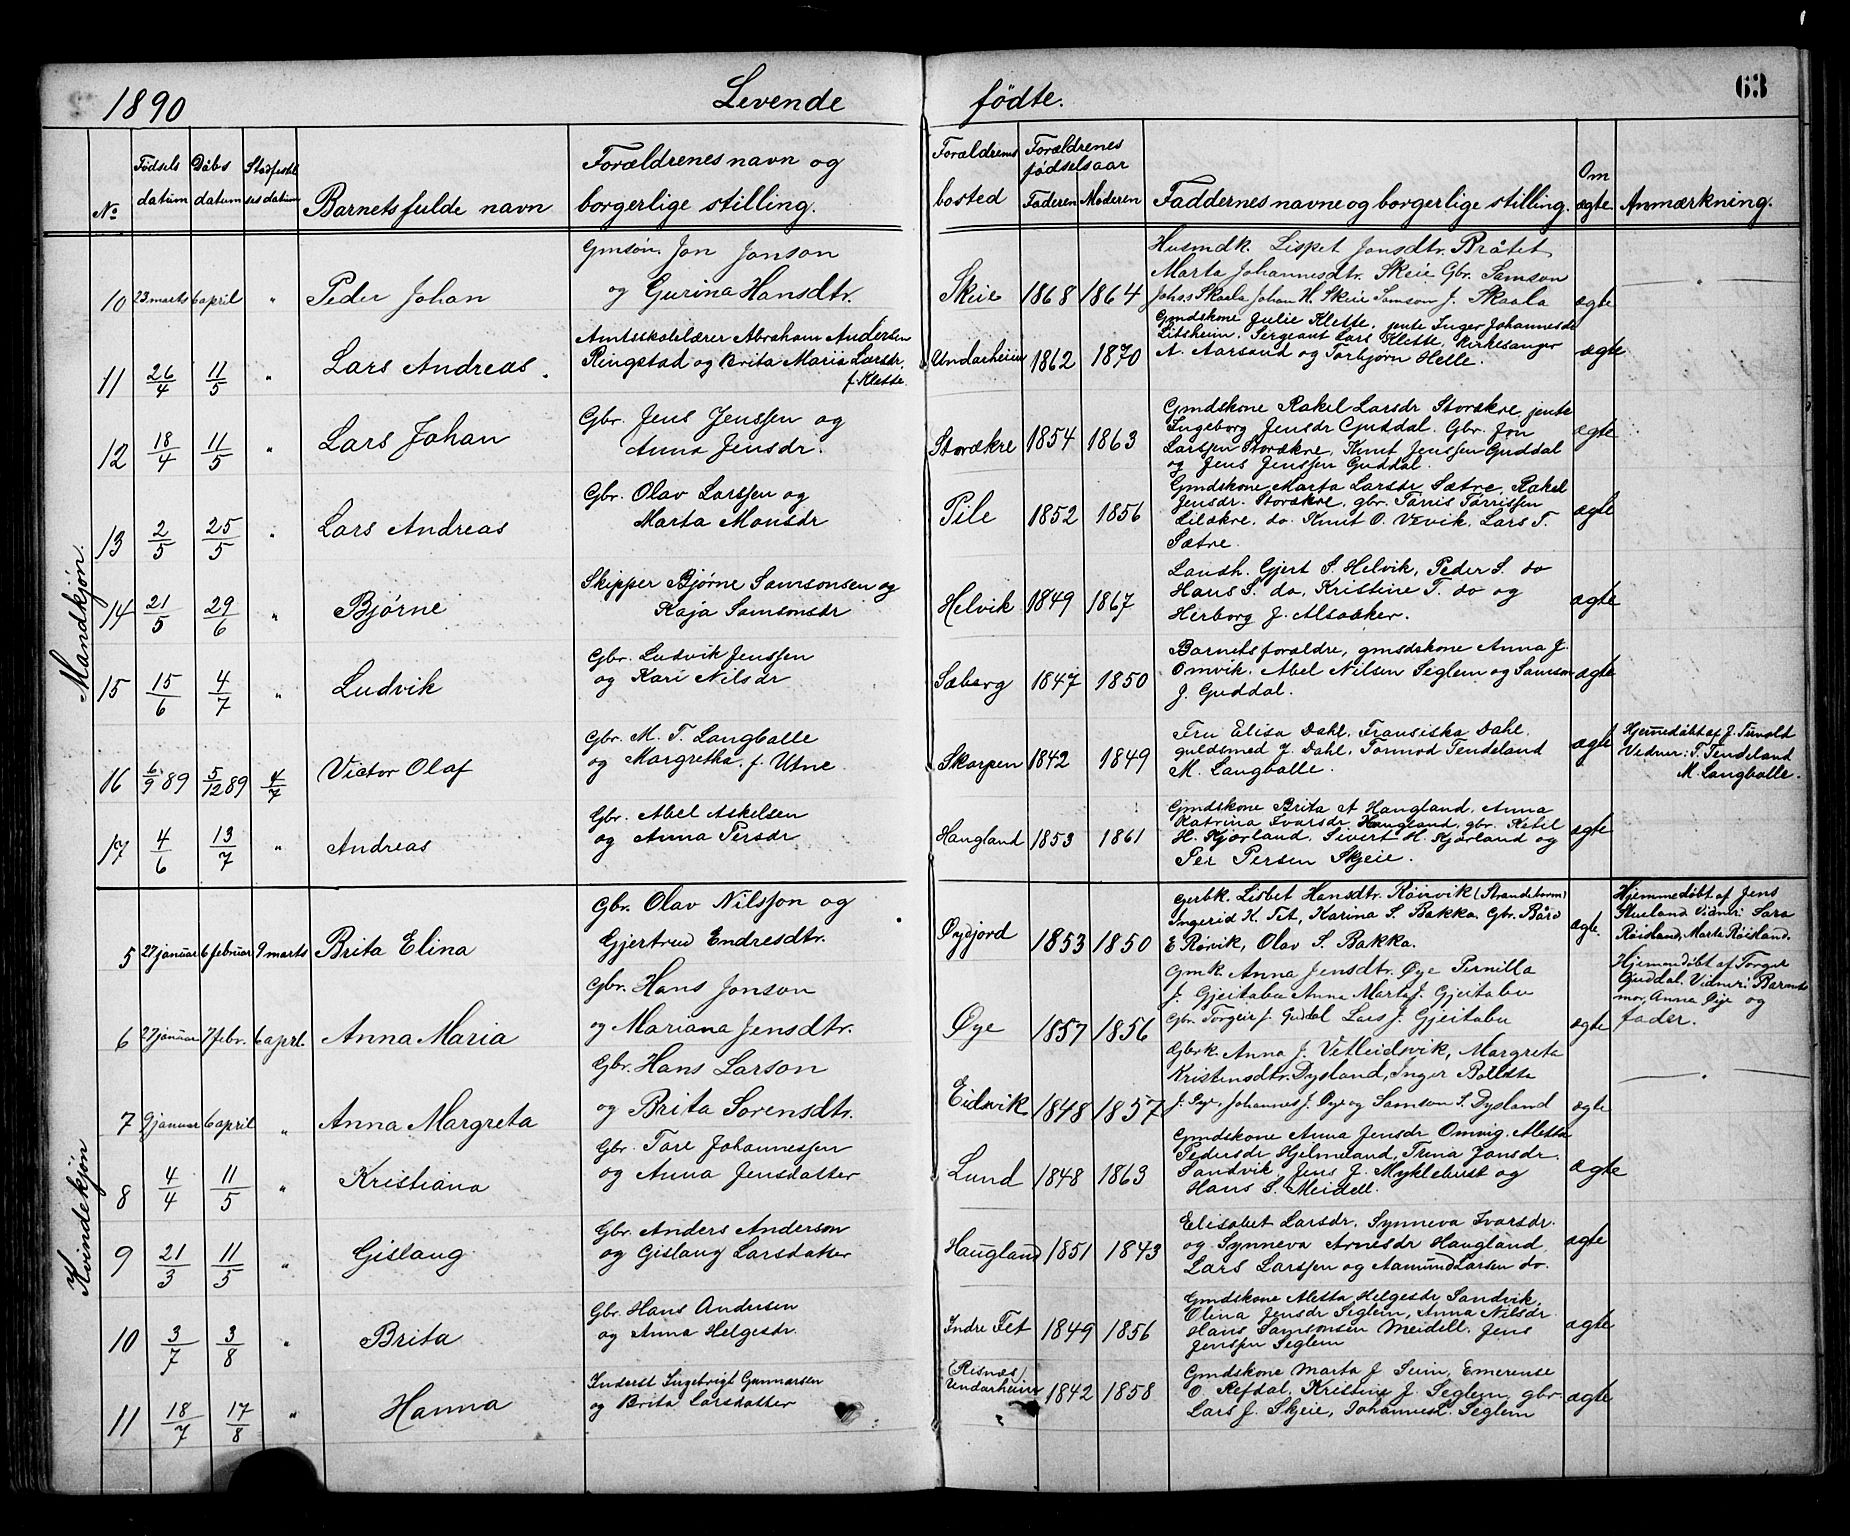 1890 Levende fødte. 63
No Fødsels datum Dåbs datum Stadfestelses datum Barnets fulde navn Forældrenes navn og borgerlige stilling. Forældrenes bosted Forældrenes fødselsaar Faderen Moderen Faddernes navne og borgerlige stilling. Om ægte Anmærkning.
Mandkjøn.
10 23 marts 6 april " Peder Johan
Gmsøn. Jon Jonson
og Gurina Hansdtr.
Skeie 1868 1864
Husmdk. Lispet Jonsdtr. Bråtet
Marta Johannesdtr. Skeie Gbr. Samson
Johas Skaala Johan H. Skeie Samson J. Skaala
ægte
11 26/4 11/5 " Lars Andreas.
Amtsskolelærer Abraham Andersen
Ringstad og Brita Maria Larsdr.
f. Klette.
Undarheim 1862 1870
Gmdskone Julie Klette, jente Inger Johannesdr
Litsheim. Sergeant Lars Klette, Kirkesanger
A. Aarsand og Torbjørn Helle.
ægte
12 18/4 11/5 " Lars Johan
Gbr. Jens Jenssen og
Anna Jensdr.
Storækre 1854 1863
Gmdskone Rakel Larsdr Storækre, jente
Ingeborg Jensdr Guddal. Gbr. Jon
Larssen Storækre, Knut Jenssen Guddal
og Jens Jenssen Guddal.
ægte
13 2/5 25/5 " Lars Andreas
Gbr. Olav Larssen og
Marta Monsdr
Pile 1852 1856
Gmdskone Marta Larsdr Sætre, Rakel
Jensdr. Storækre, gbr. Tørris Tørrissen
Lilækre, do. Knut O. Vevik, Lars T.
Sætre.
ægte
14 21/5 29/6 " Bjørne
Skipper Bjørne Samsonsen og
Kaja Samsonsdr
Helvik 1849 1867
Landh. Gjert S. Helvik, Peder S. do
Hans S. do, Kristine T. do og
Herborg J. Alsaaker.
ægte
15 15/6 4/7 " Ludvik
Gbr. Ludvik Jenssen
og Kari Nilsdr
Sæberg 1847 1850
Barnets forældre, gmdskone Anna J.
Omvik. Abel Nilsen Seglem og Samson
J. Guddal.
ægte
16 6/9 89 5/12 89 4/7 Victor Olaf
Gbr. M. T. Langballe
og Margretha, f. Utne
Skarpen 1842 1849
Fru Elisa Dahl, Fransiska Dahl
guldsmed J. Dahl, Tormod Tendeland
M. Langballe.
ægte
Hjemmedøbt af J.
Vidner: T. Tendeland
M. Langballe.
17 4/6 13/7 " Andreas
Gbr. Abel Askelsen
og Anna Persdr
Haugland 1853 1861
Gmdskone Brita A Haugland, Anna
Katrina Ivarsdr Haugland, gbr. Ketil
H. Kjørland, Sivert H. Kjørland og
Per Persen Skjeie.
ægte
Kvindekjøn
5 27 januar 6 februar 9 marts Brita Elina
Gbr. Olav Nilsson og
Gjertrud Endresdtr.
Øyjord 1853 1850
Gbrk. Lisbet Hansdtr. Røirvik (Strandebarm)
Ingerid K. Fet, Karina S. Bakka. Gbr. Bård
E Rørvik, Olav S. Bakka.
ægte.
Hjemmedøbt af Jens
Vidner: Sara
Røisland, Marta Røisland.
6 27 januar 7 febr. 6 aprl. Anna Maria
Gbr. Hans Jonson
og Mariana Jensdtr.
Øye 1857 1856
Gmk. Anna Jensdtr. Øye Pernilla
J. Gjeitabu Anna Marta J. Gjeitabu
Gbr. Torgeir J. Gudal Lars J. Gjeitabu
ægte
Hjemmedøbt af Torgei
Guddal. Vidner: Barnets
mor, Anna Øye og
fader.
7 9 januar 6 april " Anna Margreta
Gbr. Hans Larson
og Brita Sørensdtr.
Eidsvik 1848 1857
Gbrk. Anna J. Vetleidsvik, Margreta
Kristensdtr. Dysland, Inger Bolletta
J. Øye, Johannes J. Øye og Samson S. Dysland
ægte
8 4/4 11/5 " Kristiana
Gbr. Tore Johannessen
og Anna Jensdatter
Lund 1848 1863
Gmdskone Anna Jensdr Omvig. Aletta
Pedersdr Hjelmeland, Trina Jansdr.
Sandvik, Jens J. Myklebust og
Hans S. Meidell.
ægte
9 21/3 11/5 " Gislaug
Gbr. Anders Anderson
og Gislaug Larsdatter
Haugland 1851 1843
Elisabet Larsdr. Synneva Ivarsdr.
og Synneva Arnesdr Haugland,
Lars Larssen og Aamund Larsen do.
ægte
10 3/7 3/8 " Brita
Gbr. Hans Andersen
og Anna Helgesdr.
Indre Fet 1849 1856
Gmdskone Aletta Helgesdr Sandvik,
Olina Jensdr Seglem, Anna Nilsdr
Hans Samsonsen Meidell. Jens
Jenssen Seglem
ægte
11 18/7 17/8 " Hanna
Inderst Ingebrigt Gunnarsen
og Brita Larsdatter
(Risnæs)
Undarheim 1842 1858
Gmdskone Marta J Seim, Emerense
O. Refdal, Kristine J. Seglem, gbr
Lars J. Skjeie, Johannes L. Seglem
ægte